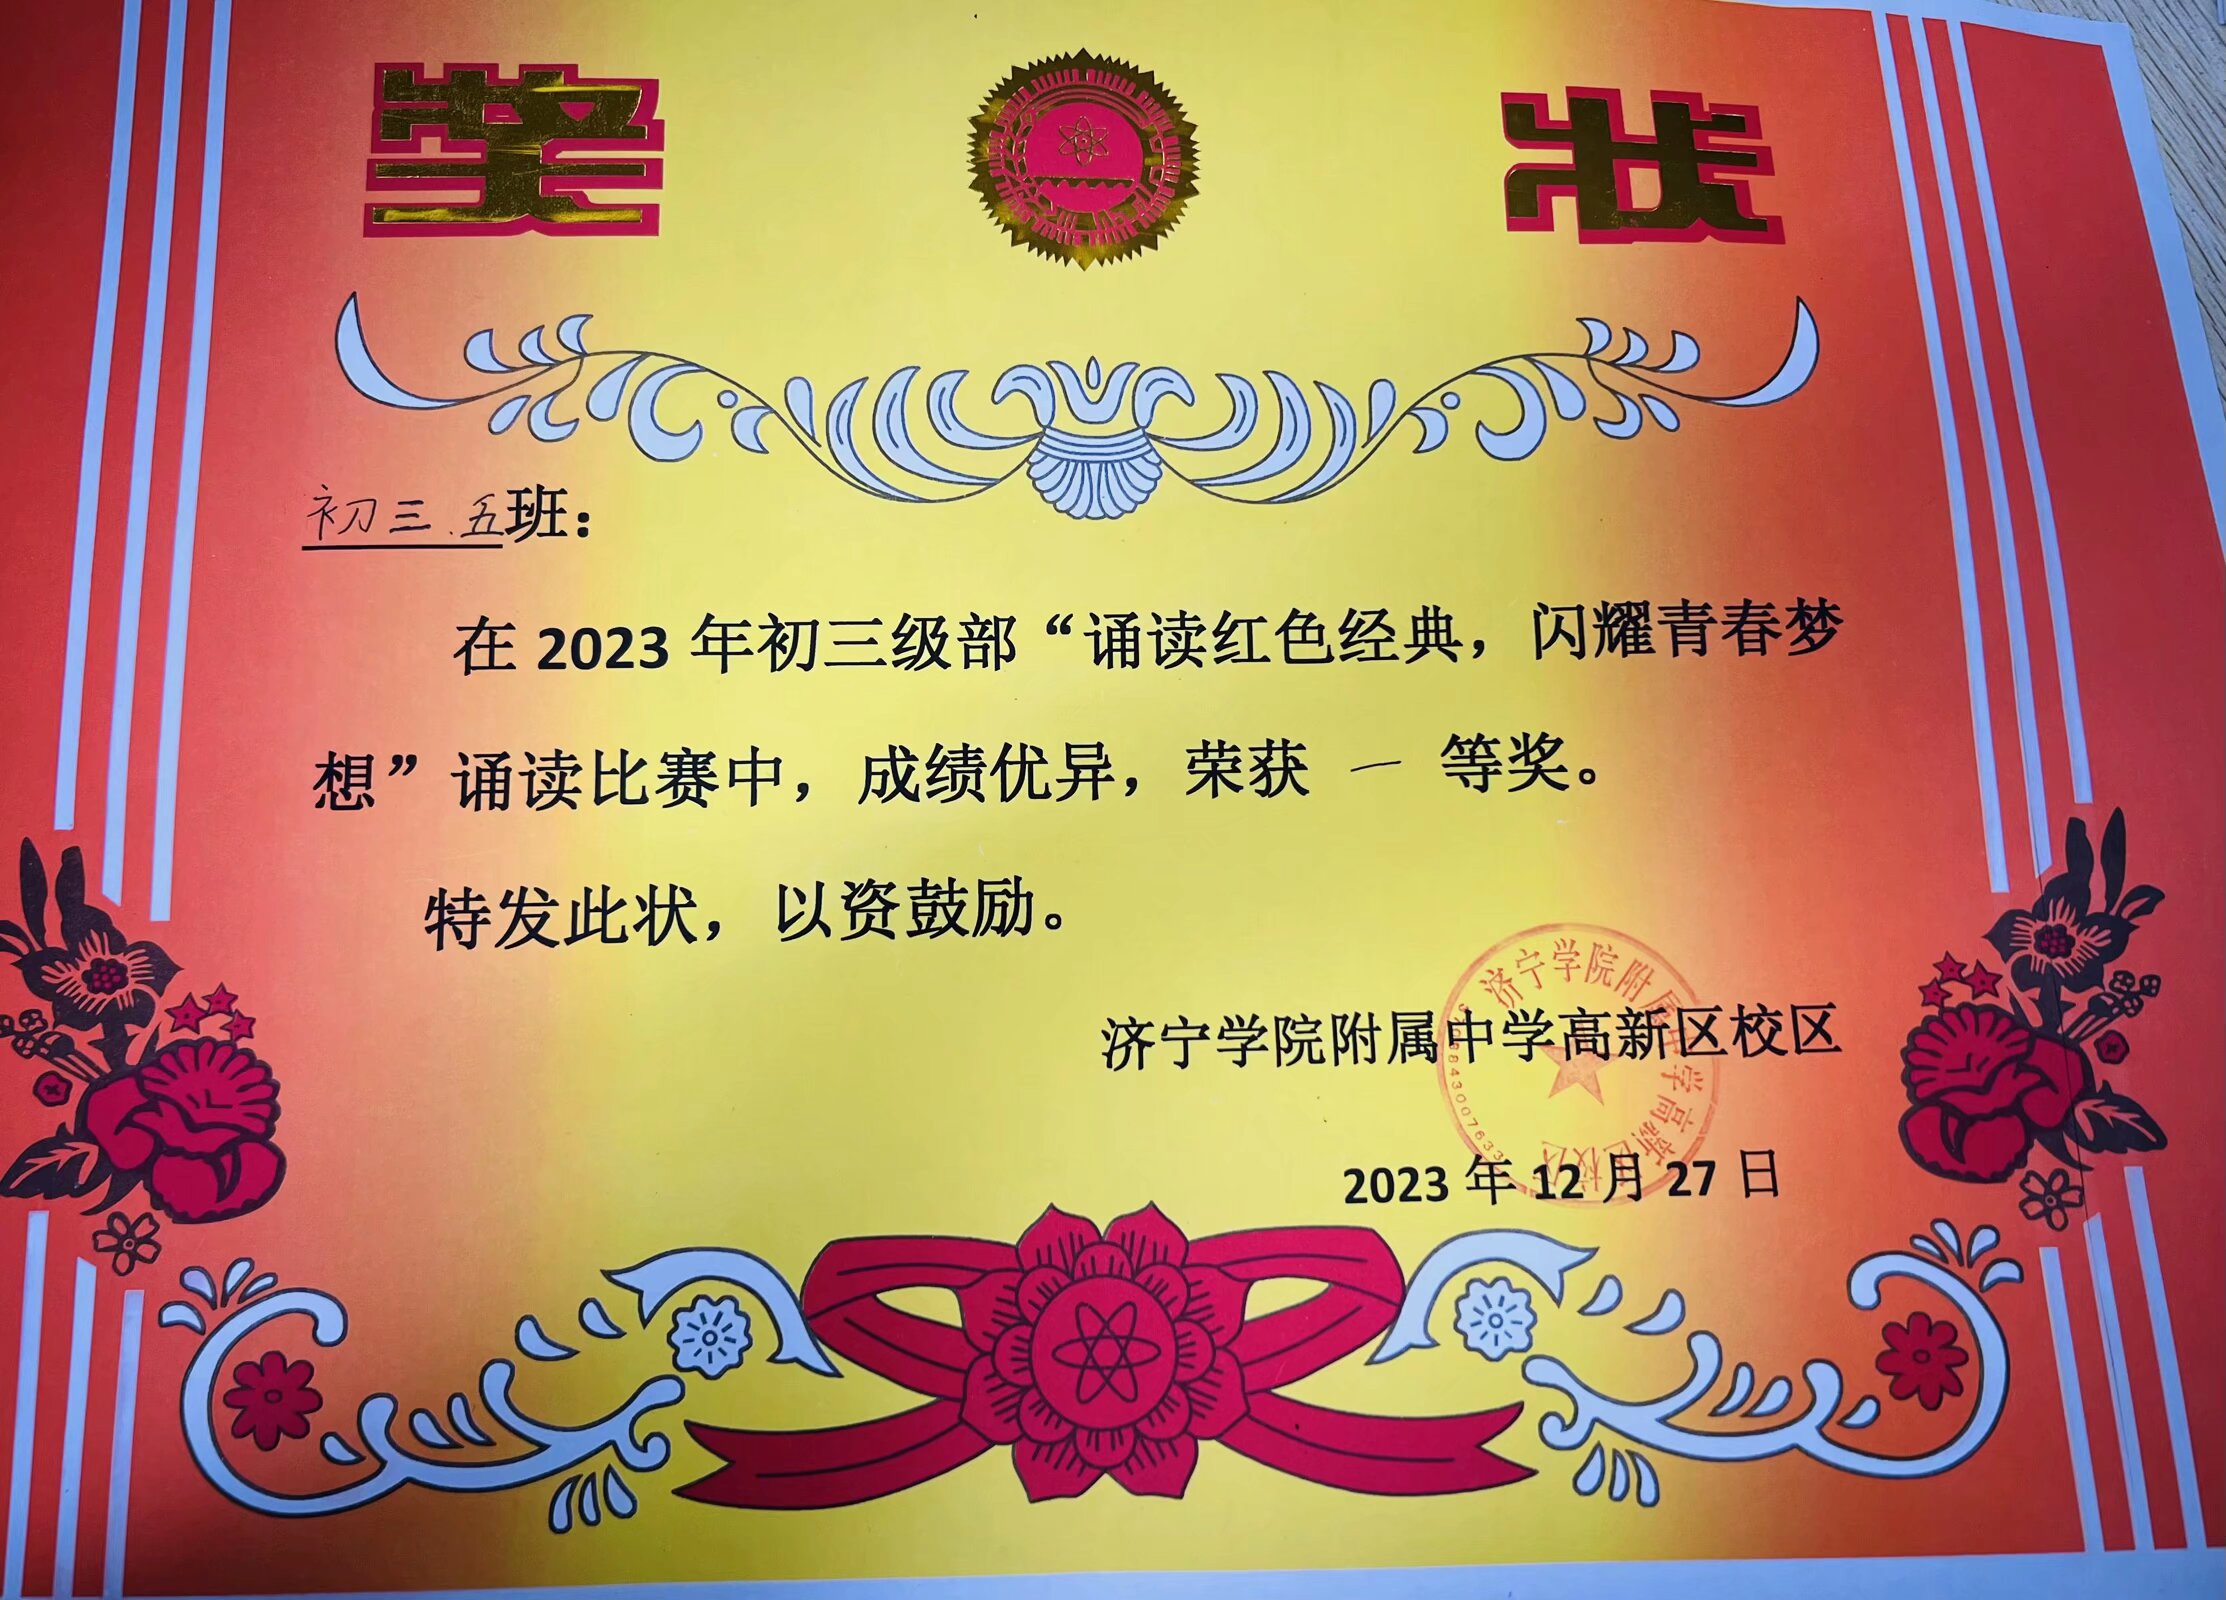 奖 状
初三.五班：
在 2023 年初三级部“诵读红色经典，闪耀青春梦
想”诵读比赛中，成绩优异，荣获 一 等奖。
特发此状，以资鼓励。
济宁学院附属中学高新区校区
2023 年 12 月 27 日
济宁学院附属中学高新区校区